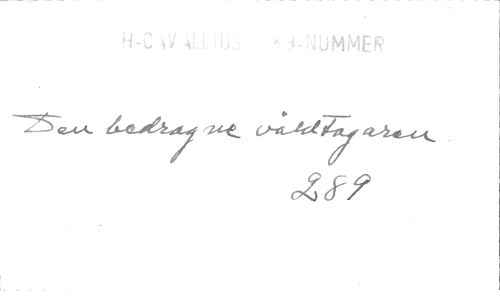 H-CAVALLIUS KB-NUMMER
Den bedragne våldtagaren.
289